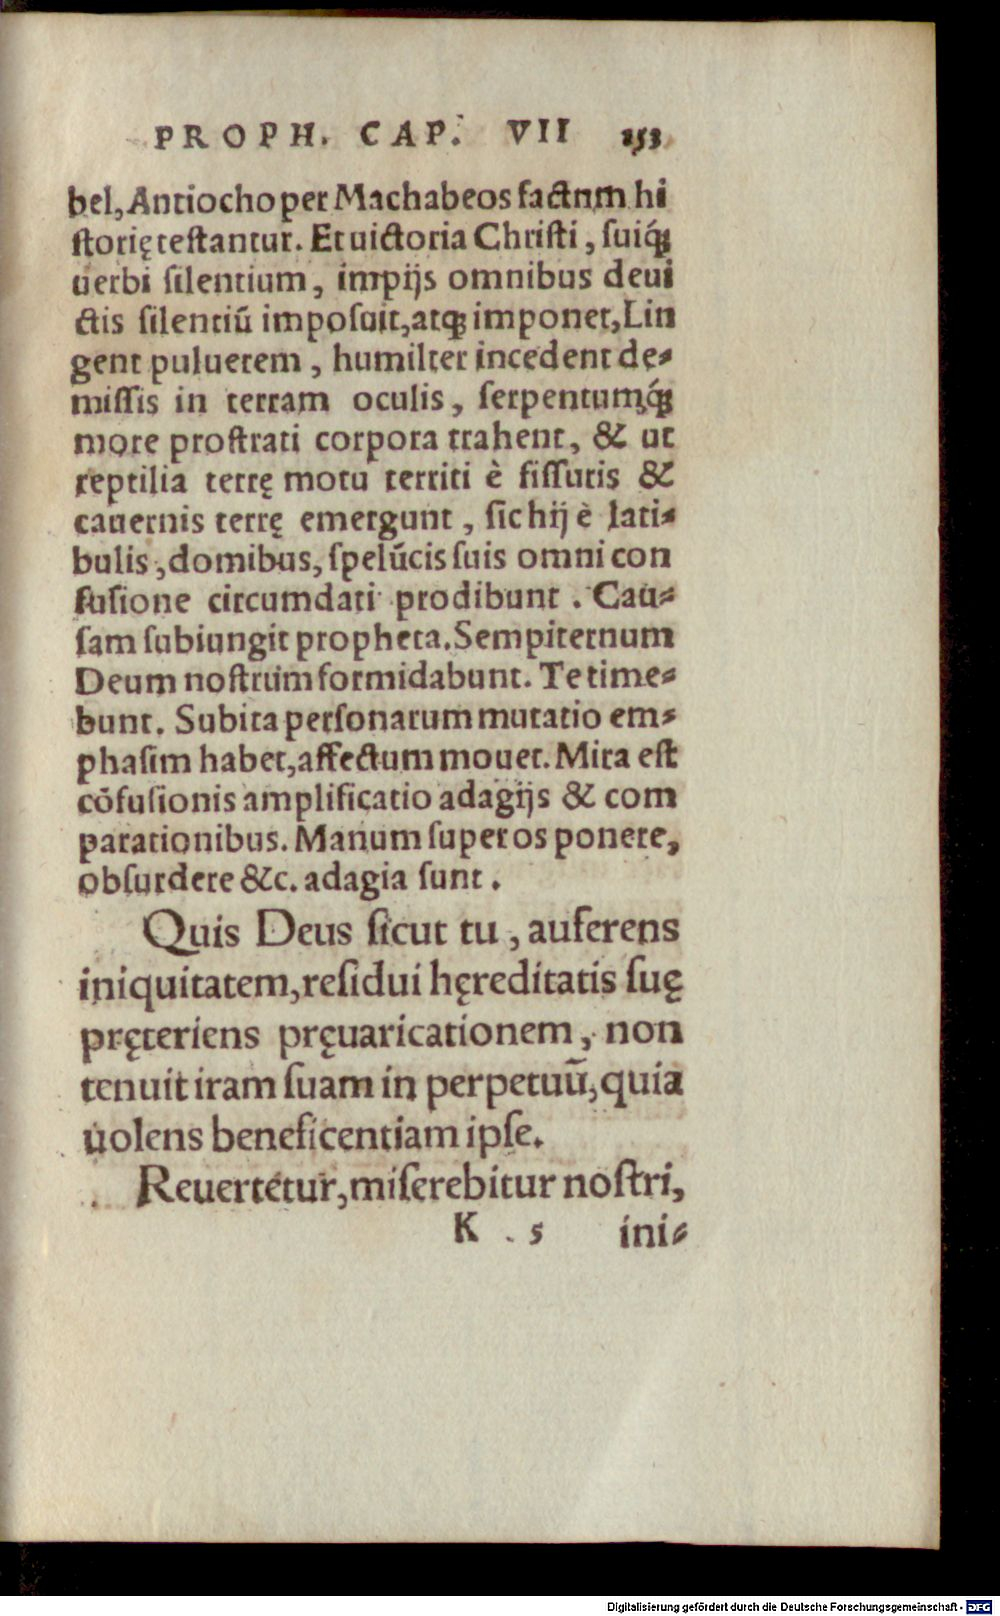 PROPH. CAP. VII 153
bel, Antiocho per Machabeos factum hi
ſtorię teſtantur. Et uictoria Chriſti, ſuiq́ꝫ
uerbi ſilentium, impijs omnibus deui
ctis ſilentiũ impoſuit, atqꝫ imponet, Lin
gent puluerem, humilter incedent de⸗
miſſis in terram oculis, ſerpentumq́ꝫ
more proſtrati corpora trahent, & ut
reptilia terrę motu territi è fiſſuris &
cauernis terrę emergunt, ſic hij è lati⸗
bulis, domibus, ſpelũcis ſuis omni con
fuſione circumdati prodibunt. Cau⸗
ſam ſubiungit propheta. Sempiternum
Deum noſtrum formidabunt. Te time⸗
bunt. Subita perſonarum mutatio em⸗
phaſim habet, affectum mouet. Mira eſt
cõfuſionis amplificatio adagijs & com
parationibus. Manum ſuper os ponere,
obſurdere &c. adagia ſunt.
Quis Deus ſicut tu, auferens
iniquitatem, reſidui hęreditatis ſuę
pręteriens pręuaricationem, non
tenuit iram ſuam in perpetuũ, quia
uolens beneficentiam ipſe.
Reuertetur, miſerebitur noſtri,
K 5 ini⸗
Digitalisierung gefördert durch die Deutsche Forschungsgemeinschaft - DFG